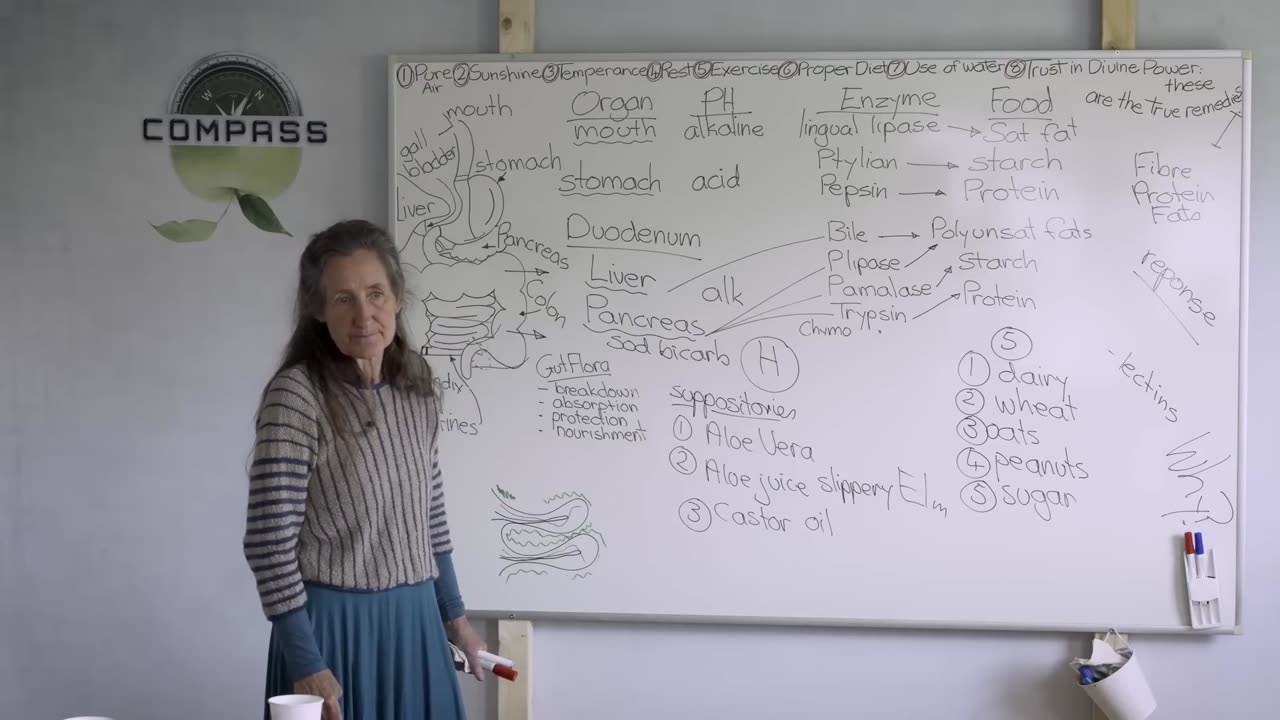 W N
COMPASS
① Pure Air ② Sunshine ③ Temperance ④ Rest ⑤ Exercise ⑥ Proper Diet ⑦ Use of water ⑧ Trust in Divine Power:
these
are the true remedies
mouth
gall
bladder
stomach
Liver
Pancreas
Colon
Organ PH Enzyme Food
mouth alkaline lingual lipase → Sat fat
Ptylian → starch
stomach acid Pepsin → Protein
Duodenum Bile → Polyunsat fats
Liver Plipase Starch
alk Pamalase
Pancreas Trypsin Protein
Chymo
sod bicarb
H
Fibre
Protein
Fats
reponse
lectins
Gut Flora
- breakdown
- absorption
- protection
- nourishment
suppositories
① Aloe Vera
② Aloe juice slippery Elm
③ Castor oil
⑤
① dairy
② wheat
③ oats
④ peanuts
⑤ sugar